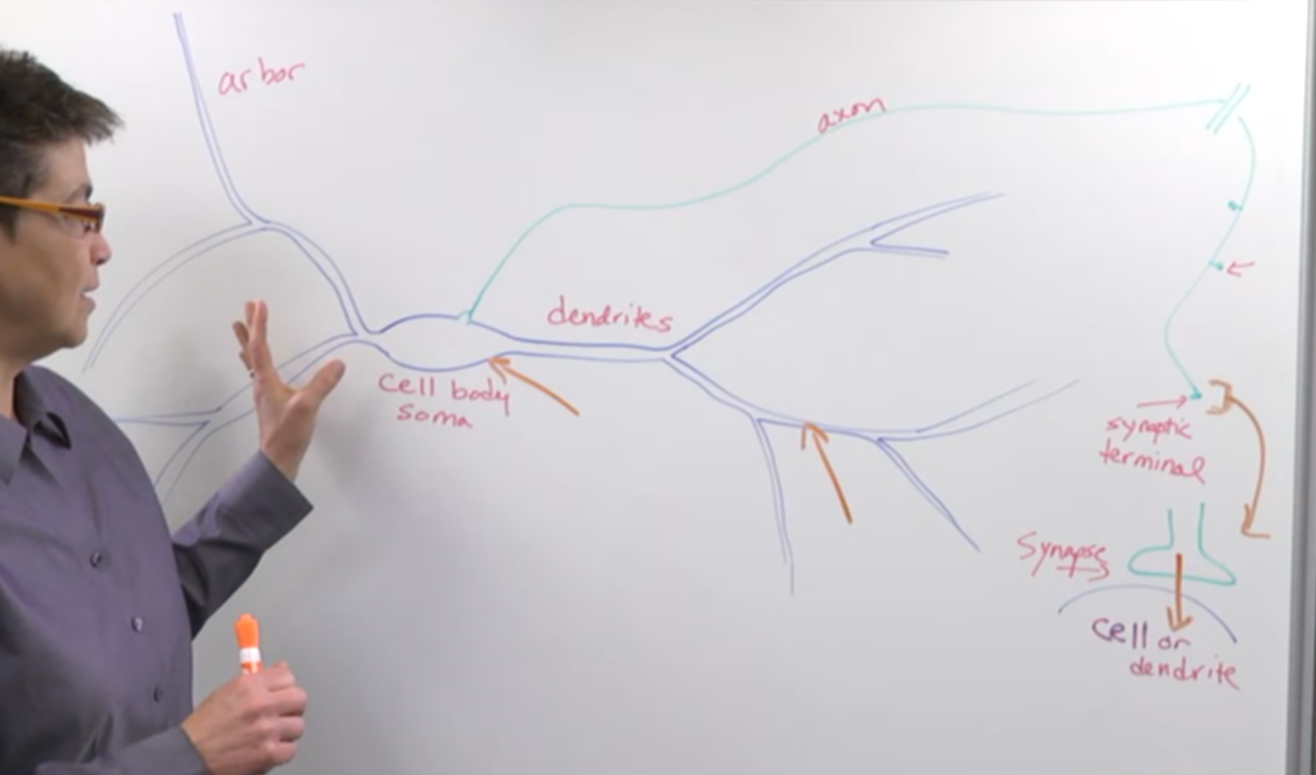 arbor
axon
dendrites
cell body
soma
synaptic
terminal
Synapse
cell or
dendrite